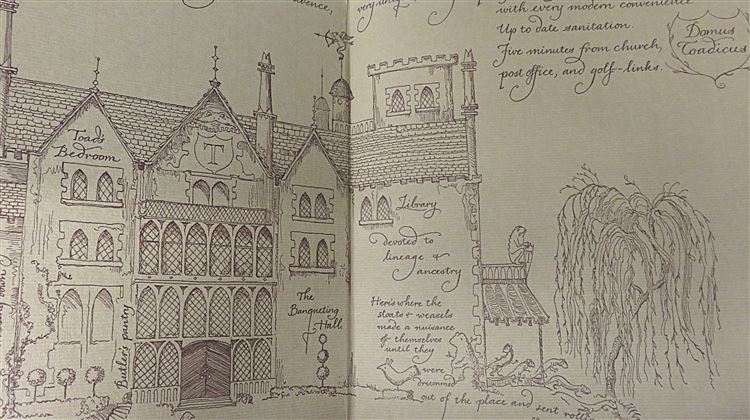 with every modern convenience
Up to date sanitation.
Five minutes from church,
post office, and golf-links.
Domus
Toadicus
Toad's
Bedroom
T
Library
devoted to
lineage &
ancestry
The
Banqueting
Hall
Butler's pantry
Here's where the
stoats & weasels
made a nuisance
of themselves
until they
were
drummed
out of the place and sent